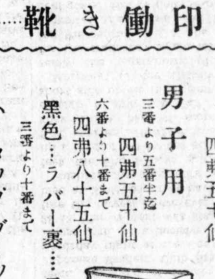 印働き靴……
四弗五十仙
男子用
三番より五番半迄
四弗五十仙
六番より十番まで
四弗八十五仙
黑色…ラバー裹…
三番より十番まで